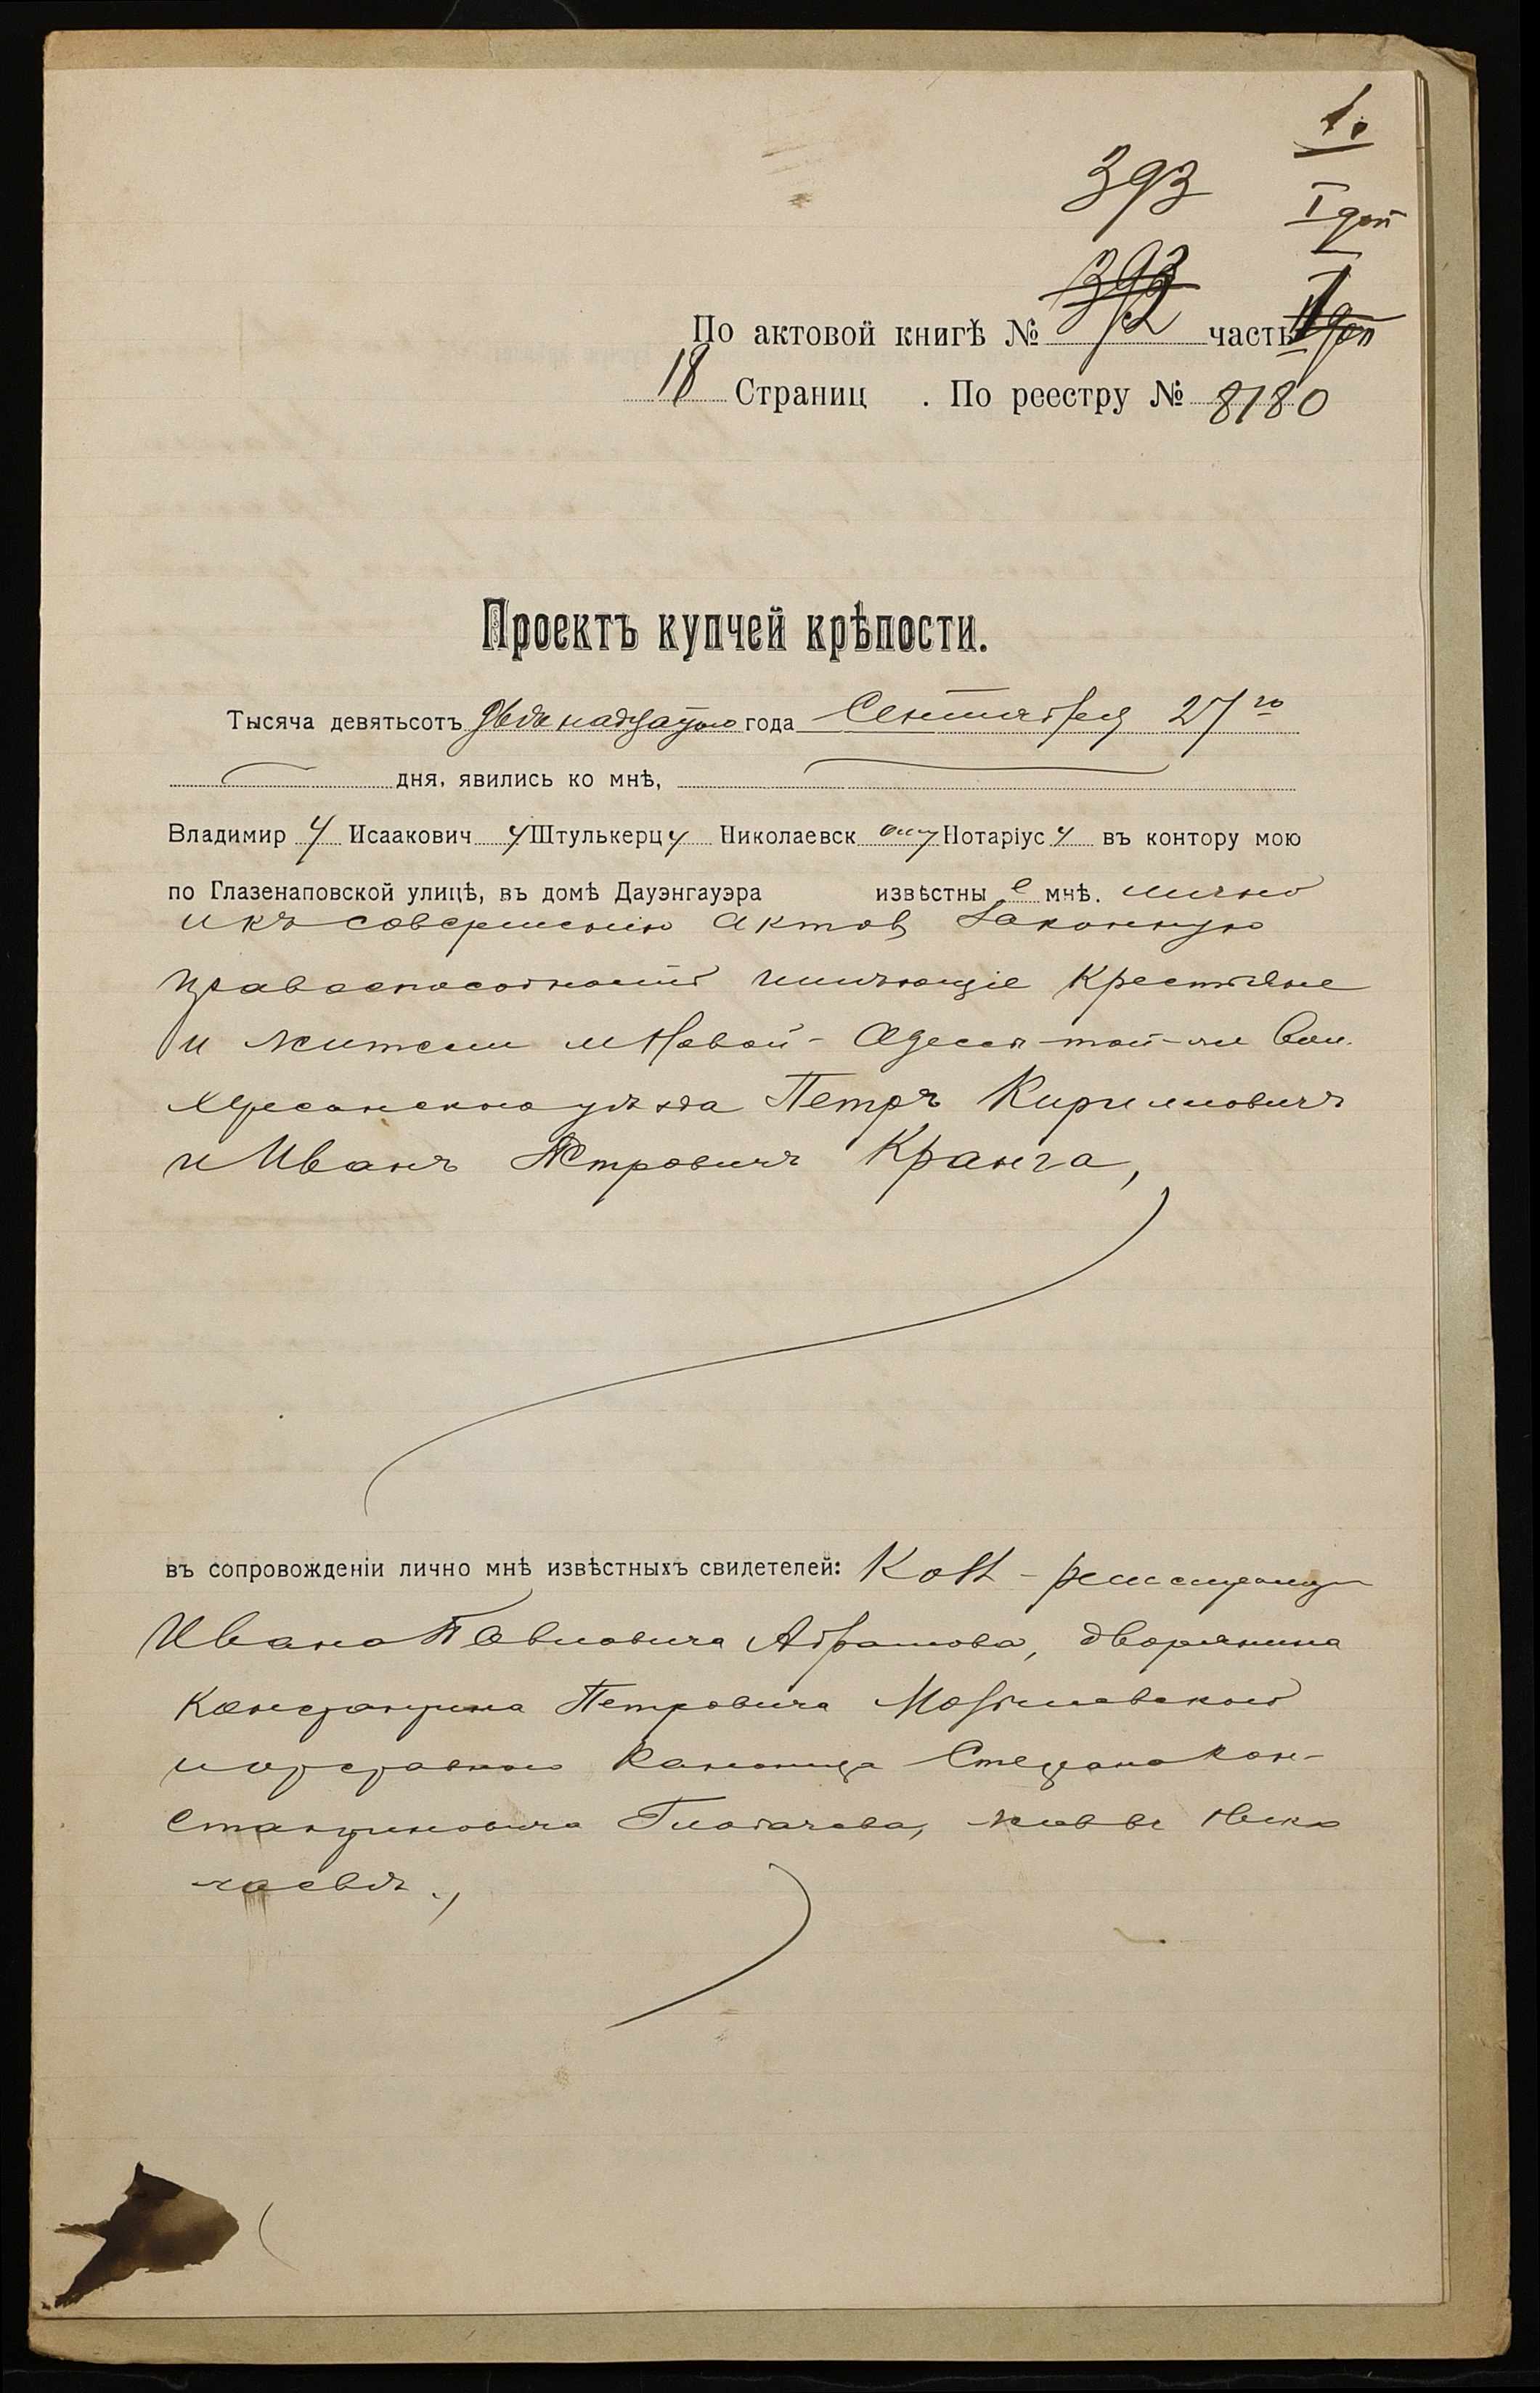 1.
393
I доп
393
По актовой книгѣ № 392 часть II доп
18 Страниц . По реестру № 8180
Проектъ купчей крѣпости.
Тысяча девятьсотъ двѣнадцатого года Сентября 27го
дня, явились ко мнѣ,
Владимир у Исаакович у Штулькерц у Николаевск ому Нотаріус у въ контору мою
по Глазенаповской улицѣ, въ домѣ Дауэнгауэра известны е мнѣ. лично
и къ совершенію актов законную
правоспособность имѣющіе крестьяне
и жители м Новой-Одессы той-же вол.
Херсонскаго уѣзда Петръ Кирилловичъ
и Иванъ Петровичъ Кранга,
въ сопровожденіи лично мнѣ извѣстныхъ свидетелей: Колл-регистратора
Ивана Павловича Абрамова, дворянина
Константина Петровича
и отставного Стефана Кон-
стантиновича Глобачева, жив въ Нико
лаевѣ.,